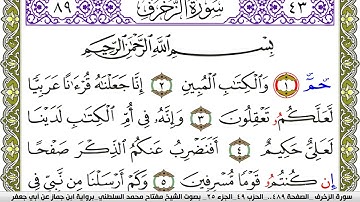 ٨٩ سُورَةُ الزُّخْرُفِ ٤٣
بِسْمِ اللَّهِ الرَّحْمَٰنِ الرَّحِيمِ
حمٓ ١ وَالْكِتَابِ الْمُبِينِ ٢ إِنَّا جَعَلْنَاهُ قُرْءَانًا عَرَبِيًّا
لَعَلَّكُمُ تَعْقِلُونَ ٣ وَإِنَّهُ فِي أُمِّ الْكِتَابِ لَدَيْنَا
لَعَلِيٌّ حَكِيمٌ ٤ أَفَنَضْرِبُ عَنكُمُ الذِّكْرَ صَفْحًا
إِن كُنتُمُ قَوْمًا مُّسْرِفِينَ ٥ وَكَمْ أَرْسَلْنَا مِن نَّبِيٍّ فِي
سورة الزخرف الصفحة ٤٨٩.. الحزب ٤٩ الجزء ٢٥ بصوت الشيخ مفتاح محمد السلطني برواية ابن جماز عن أبي جعفر